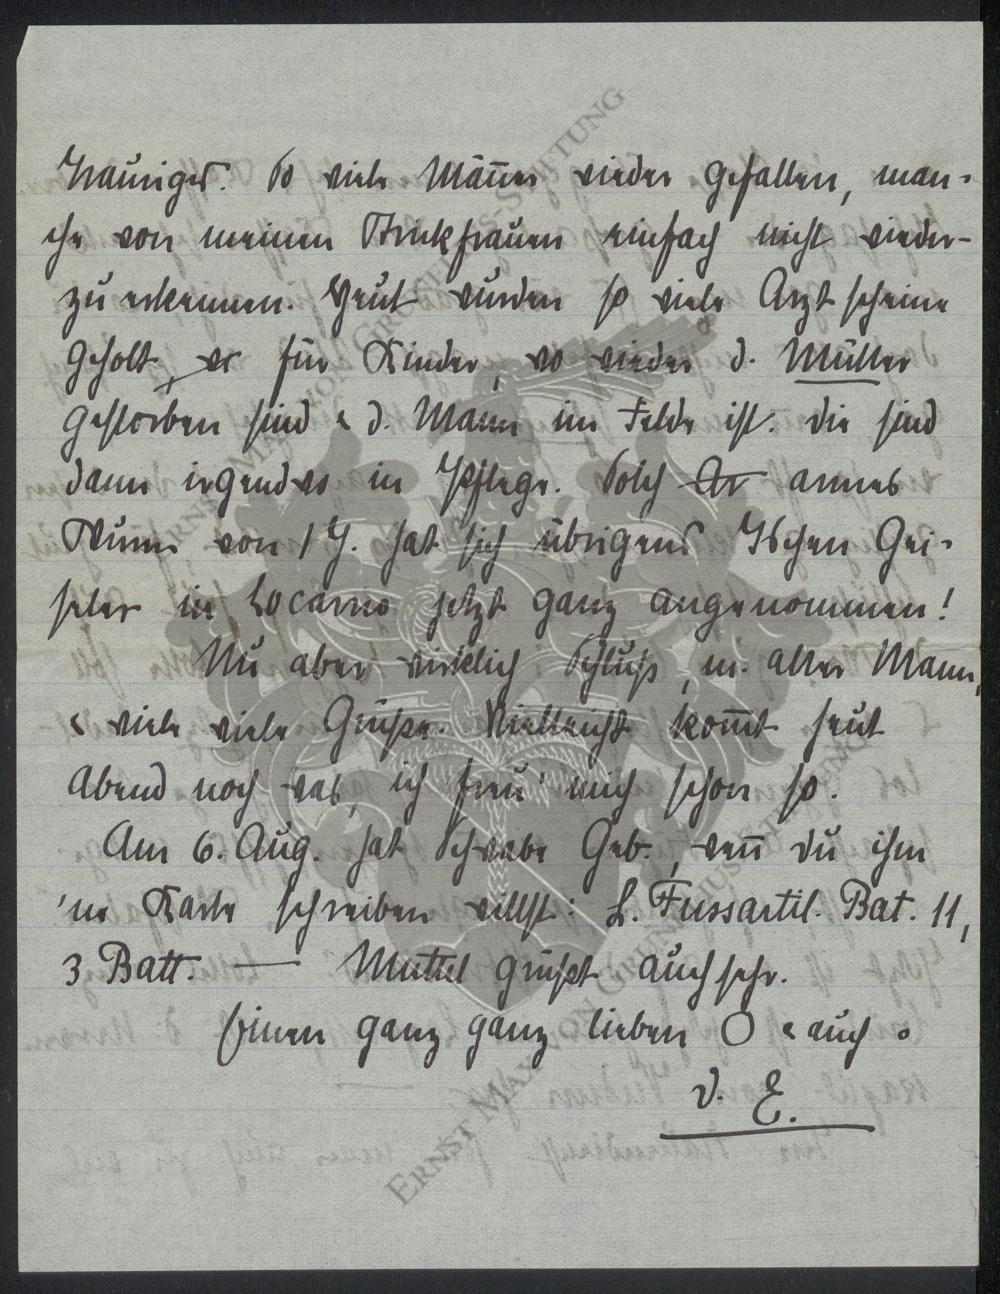 Trauriges. So viele Männer wieder gefallen, man-
che von meinen Strickfrauen einfach nicht wieder-
zu erkennen. Heut wurden so viele Arztscheine
geholt, für Kinder, wo wieder d. Mütter
gestorben sind & d. Mann im Felde ist. Die sind
dann irgendwo in Pflege. Solch armes
Wurm von 1 J. hat sich übrigens Gei-
in Locarno jetzt ganz angenommen!
Nu aber wirklich Schluß, m. alter Mann,
& viele viele Grüße. Vielleicht kom̅t heut
Abend noch was, ich freu' mich schon so.
Am 6. Aug. hat Schwabe Geb., wen̅ Du ihm
'ne Karte schreiben willst: L. Fussartil. Bat. 11,
3 Batt. — Muttel grüßt auch sehr.
Einen ganz ganz lieben O & auch o
D. E.
ERNST MAX VON GRUNELIUS-STIFTUNG
ERNST MAX VON GRUNELIUS-STIFTUNG